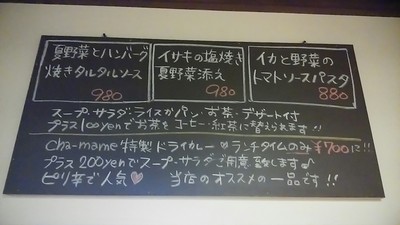 夏野菜とハンバーグ
焼きタルタルソース
980
イサキの塩焼き
夏野菜添え
980
イカと野菜の
トマトソースパスタ
880
スープ・サラダ・ライスかパン・お茶・デザート付
プラス100yenでお茶をコーヒー・紅茶に替えられます!!
cha-mame特製ドライカレー ランチタイムのみ¥700に!!
プラス200yenでスープ・サラダご用意致します♪
ピリ辛で人気♡ 当店のオススメの一品です!!